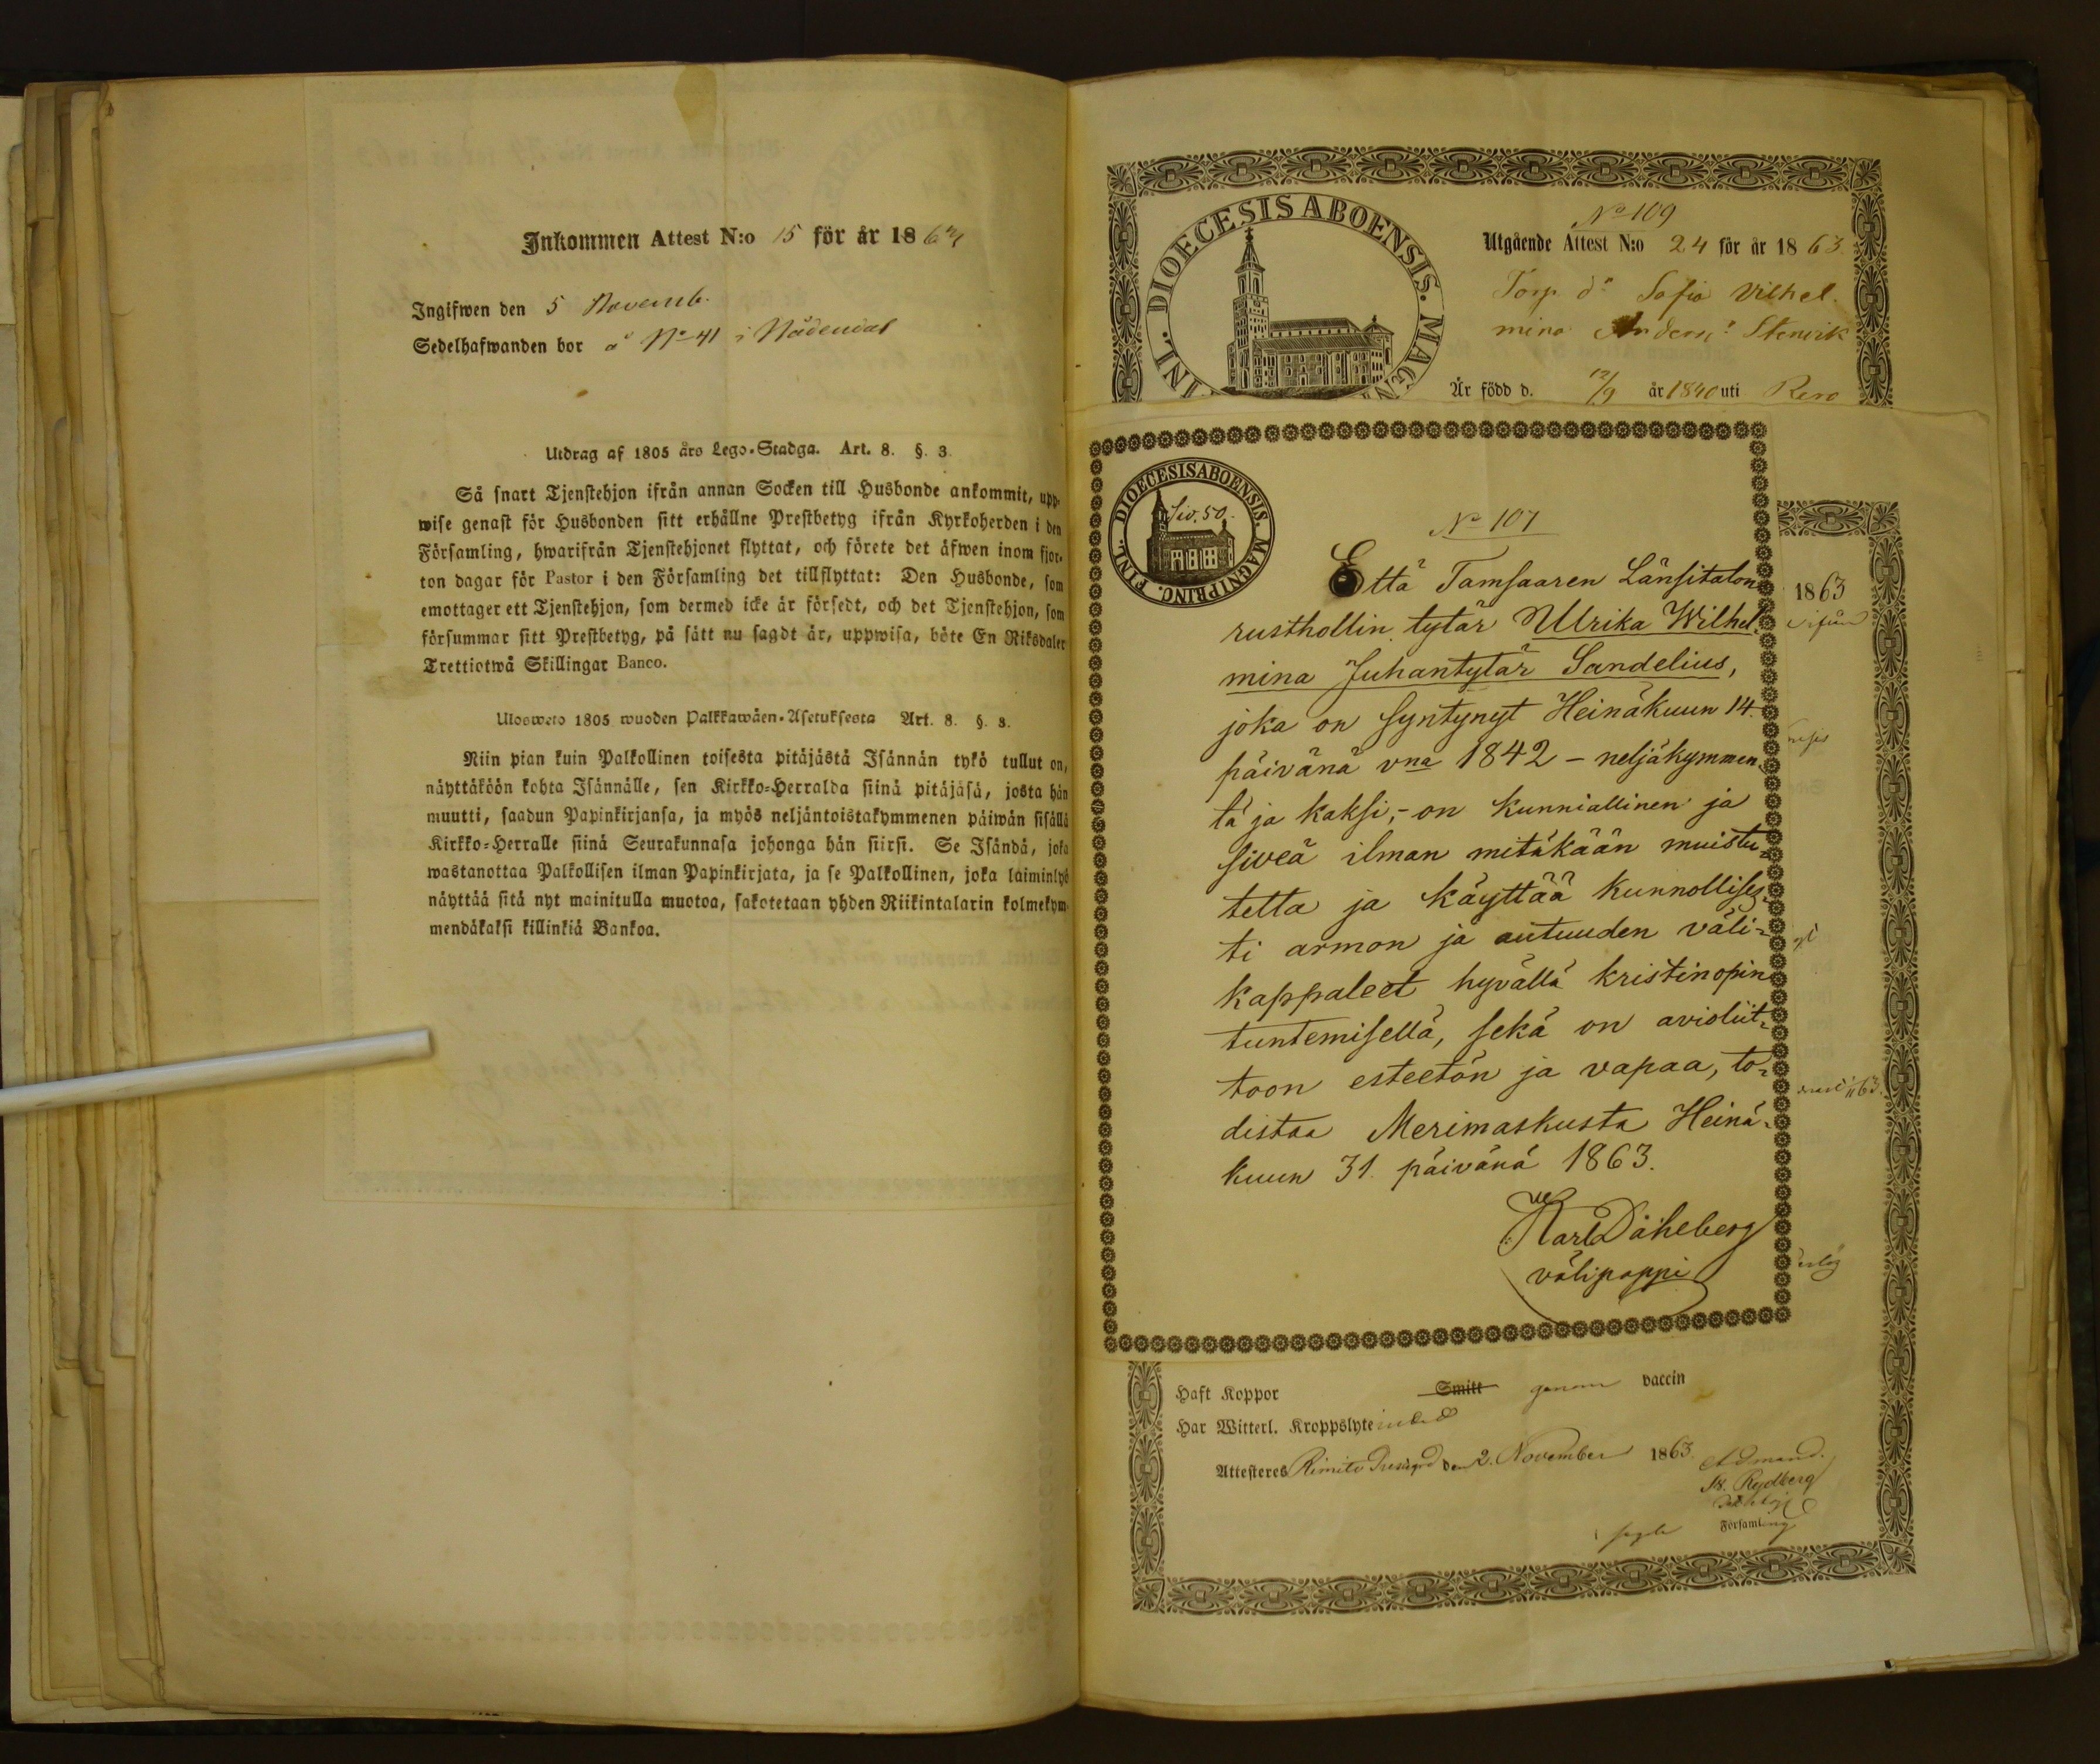 Inkommen Attest N:o 15 för år 186
Ingifwen den 5 Novemb.
Sedelhafwanden bor å No 41 i Nådendal
Utdrag af 1805 års Lego-Stadga. Art. 8. §. 3.
Så snart Tjenstehjon ifrån annan Socken till Husbonde ankommit, upp-
wise genast för Husbonden sitt erhållne Prestbetyg ifrån Kyrkoherden i den
Församling, hwarifrån Tjenstehjonet flyttat, och förete det äfwen inom fjor-
ton dagar för Pastor i den Församling det tillflyttat: Den Husbonde, som
emottager ett Tjenstehjon, som dermed icke är försedt, och det Tjenstehjon, som
försummar sitt Prestbetyg, på sätt nu sagdt är, uppwisa, böte En Riksdaler
Trettiotwå Skillingar Banco.
Ulosweto 1805 wuoden Palkkawäen-Asetuksesta Art. 8. §. 3.
Niin pian kuin Palkollinen toisesta pitäjästä Isännän tykö tullut on,
näyttäköön kohta Isännälle, sen Kirkko-Herralda siinä pitäjäsä, josta hän
muutti, saadun Papinkirjansa, ja myös neljäntoistakymmenen päiwän sisällä
Kirkko-Herralle siinä Seurakunnasa johonga hän siirsi. Se Isändä, joka
wastanottaa Palkollisen ilman Papinkirjata, ja se Palkollinen, joka laiminlyö
näyttää sitä nyt mainitulla muotoa, sakotetaan yhden Riikintalarin kolmekym-
mendäkaksi killinkiä Bankoa.
FINL. DIOECESIS ABOENSIS. MAGN
No 109
Utgående Attest N:o 24 för år 1863.
Torp. dr Sofia Vilhel-
mina Anders: Stenvik
Är född d. 12/9 år 1840 uti Rero
FINL. DIOECESIS ABOENSIS. MAGNI PRINC.
Siv. 50.
No 107
Että Tamsaaren Länsitalon
rusthollin tytär Ulrika Wilhel-
mina Juhantytär Sandelius,
joka on syntynyt Heinäkuun 14.
päivänä vna 1842 - neljäkymmen-
tä ja kaksi, - on kunniallinen ja
siveä ilman mitäkään muistu-
tetta ja käyttää kunnollises-
ti armon ja autuuden väli-
kappaleet hyvällä kristinopin
tuntemisella, sekä on avioliit-
toon esteetön ja vapaa, to-
distaa Merimaskusta Heinä-
kuun 31. päivänä 1863.
Karl Däheberg
välipappi
1863
Haft Koppor Smitt genom vaccin
Har Witterl. Kroppslyte
Attesteras Rimito Prestgrd den 2. November 1863.
Rydberg
Församling